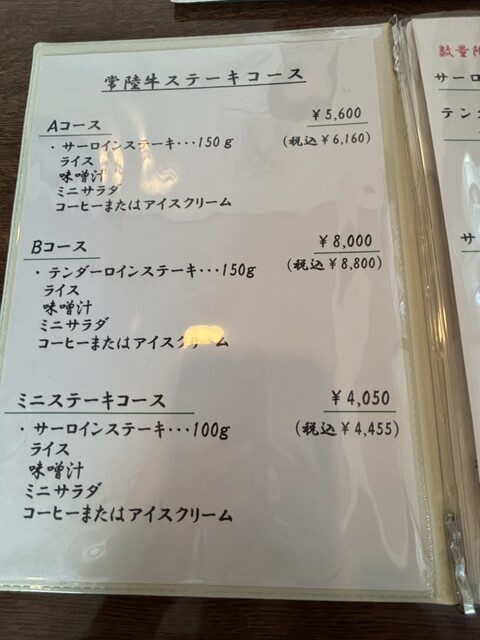 常陸牛ステーキコース
Aコース ￥5,600
・サーロインステーキ･･･150g (税込￥6,160)
ライス
味噌汁
ミニサラダ
コーヒーまたはアイスクリーム
Bコース ￥8,000
・テンダーロインステーキ･･･150g (税込￥8,800)
ライス
味噌汁
ミニサラダ
コーヒーまたはアイスクリーム
ミニステーキコース ￥4,050
・サーロインステーキ･･･100g (税込￥4,455)
ライス
味噌汁
ミニサラダ
コーヒーまたはアイスクリーム
数量
サーロ
テン
サ